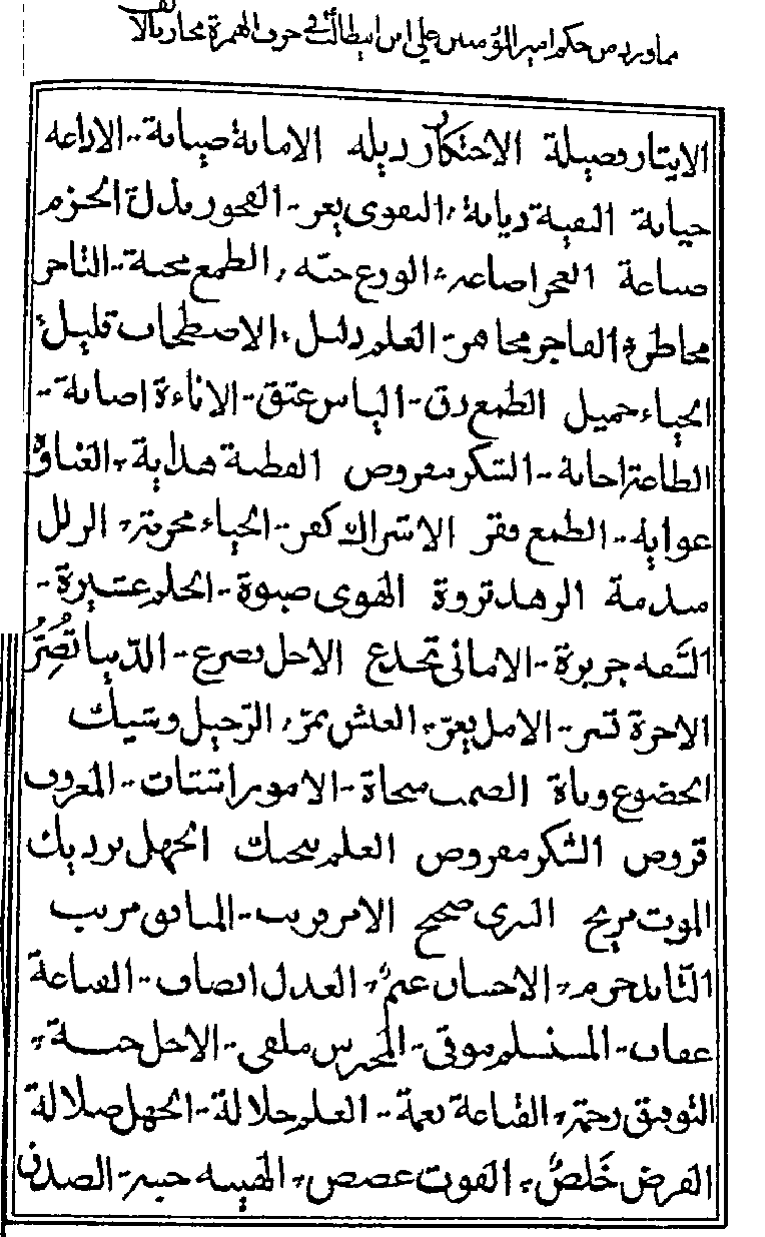 مما ورد من حكم امير المؤمنين علي ابن ابيطالب في حرف الهمزة
الايثار فضيلة الاحتكار رذيله الامانة صيانة الاذاعه
خيانة التقية ديانة التقوى يعز الفجور يذل الحزم
صناعة العجز اضاعه الورع جنّه الطمع محنة التاجر
مخاطر الفاجر مجاهر العلم دليل الاصطحاب قليل
الحياء جميل الطمع رق الياس عتق الاناءة اصابة
الطاعة الشكر مفروض الفطنة هداية
غوايه الطمع فقر الاشراك كفر الحياء الزلل
الزهد ثروة الهوى صبوة الحلم عشيرة
السّفه جريرة الامانى تخدع الاجل يصرع الدّنيا تُضِرُّ
الاخرة تسر الامل يغرّ العيش يمرّ الرّحيل وشيك
الصمت منجاة الامور اشتات المعروف
قروض الشكر مفروض العلم ينجيك الجهل يرديك
الموت مريح صحيح الامر قريب المنافق مريب
التايد حزم الاحسان غنم العدل انصاف القناعة
عفاف المستسلم موقى المحترس ملقى الاجل جنة
التوفيق رحمة القناعة نعمة العلم جلالة الجهل ضلالة
الفرص خُلَس الفوت غصص الهيبه خيبه الصدق